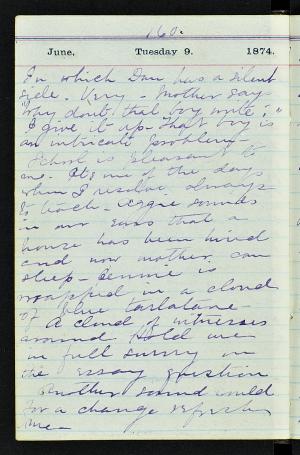 160.
June. Tuesday 9. 1874.
In which Dan has a silent
side. Very - Mother says
"Why don't that boy write,"
I give it up - That boy is
an intricate problem -
School is pleasant to
me. It's one of the days
when I resolve always
to teach - Aggie sounds
in our ears that a
house has been hired
and now mother can
sleep - Jennie is
wrapped in a cloud
of blue tarlatane -
A cloud of witnesses
around hold me
in full survey on
the essay question
Another sound would
for a change refresh
me -